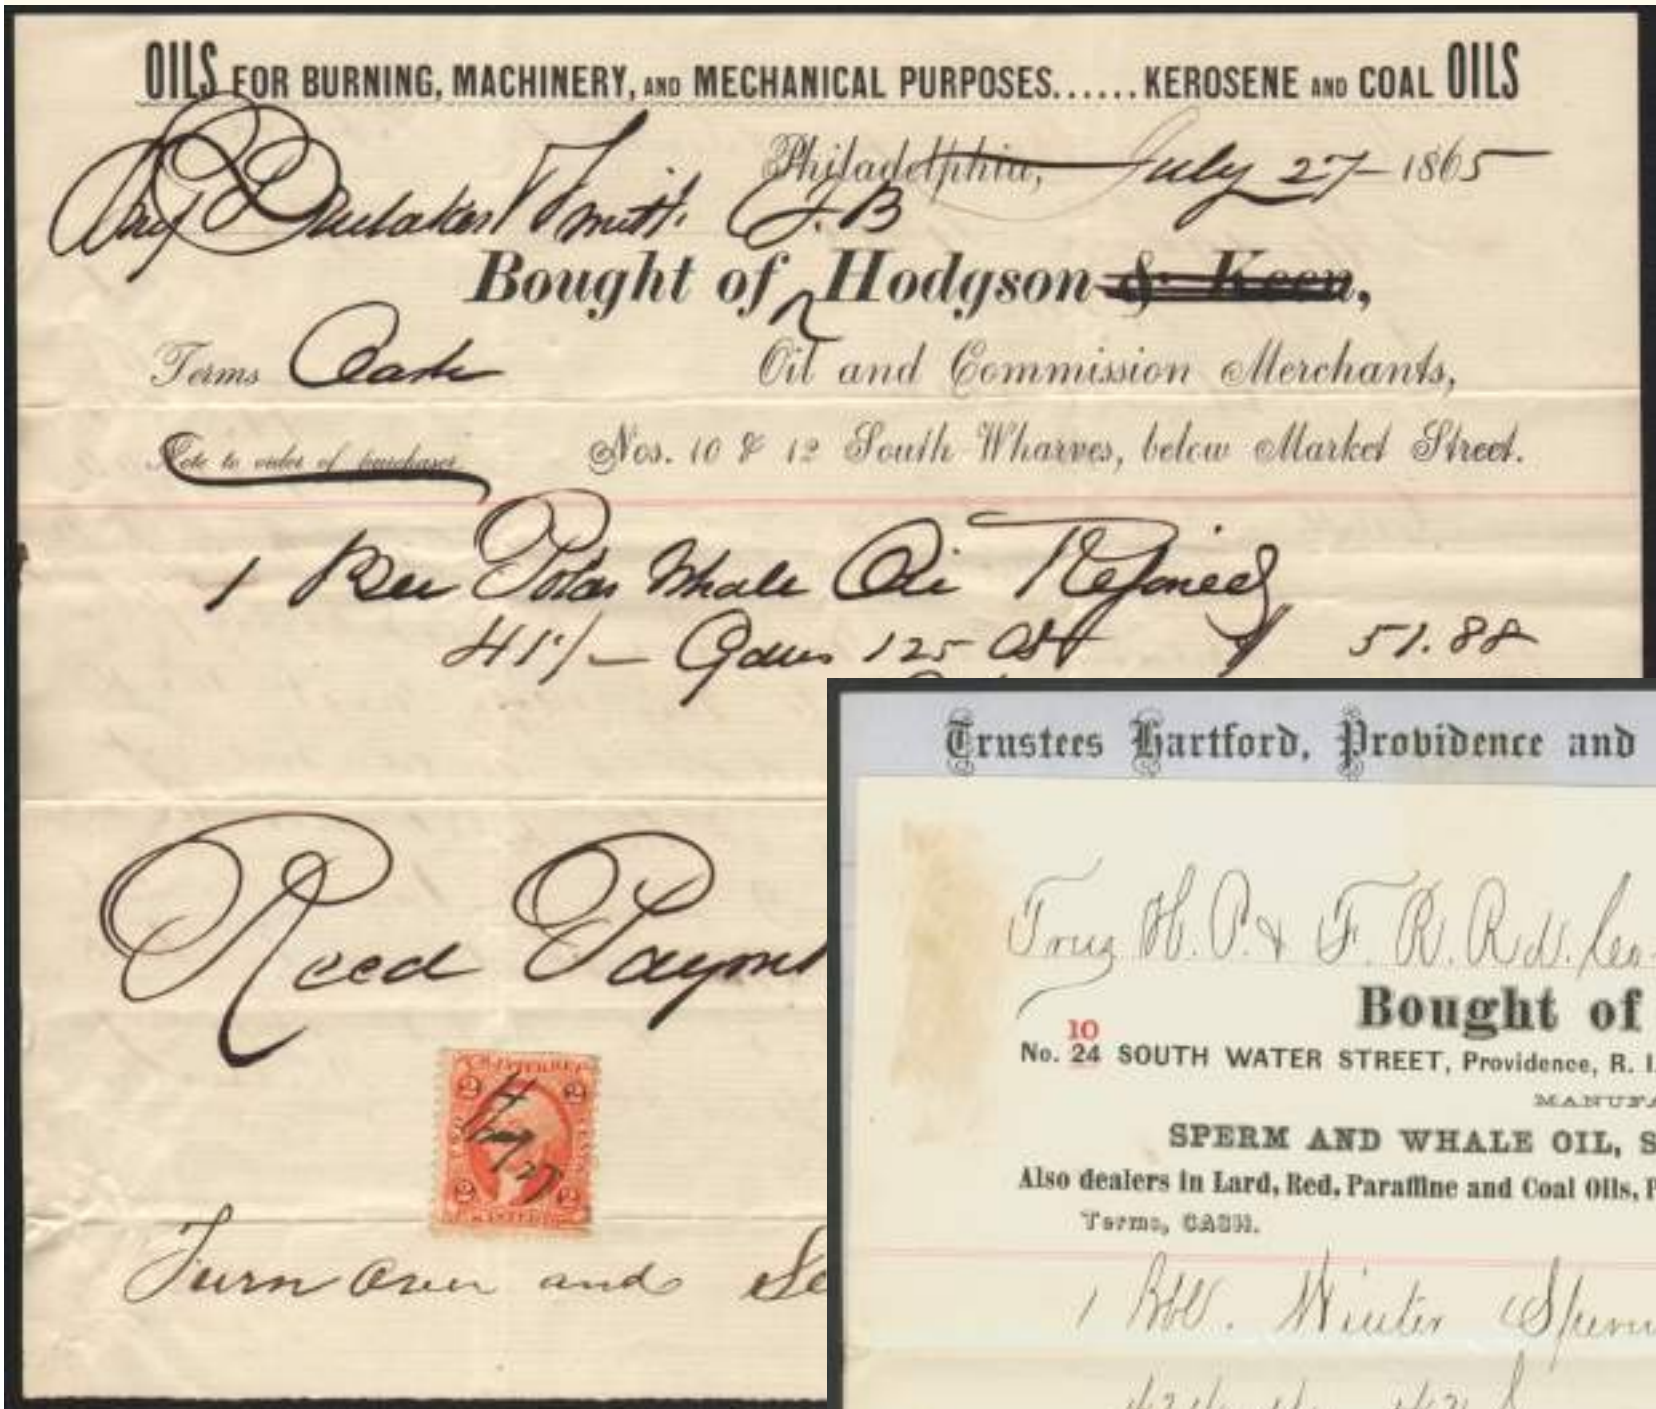 OILS FOR BURNING, MACHINERY, AND MECHANICAL PURPOSES......KEROSENE AND COAL OILS
Philadelphia, July 27 1865
Smith J. B
Bought of Hodgson & Keen,
Terms Cash Oil and Commission Merchants,
Note to order of purchaser Nos. 10 & 12 South Wharves, below Market Street.
1 Polar Whale Oil Refined
41 1/2 Galls 125 $ 51.88
Recd Paymt
U.S. INTER. REV.
2 2
2 2
H
27
Turn over and
Trustees Hartford, Providence and
H. P. & F. R. Rd.
Bought of
10
No. 24 SOUTH WATER STREET, Providence, R. I.
MANUFA
SPERM AND WHALE OIL, S
Also dealers in Lard, Red, Paraffine and Coal Oils, P
Terms, CASH.
1 Bbl. Winter Sperm